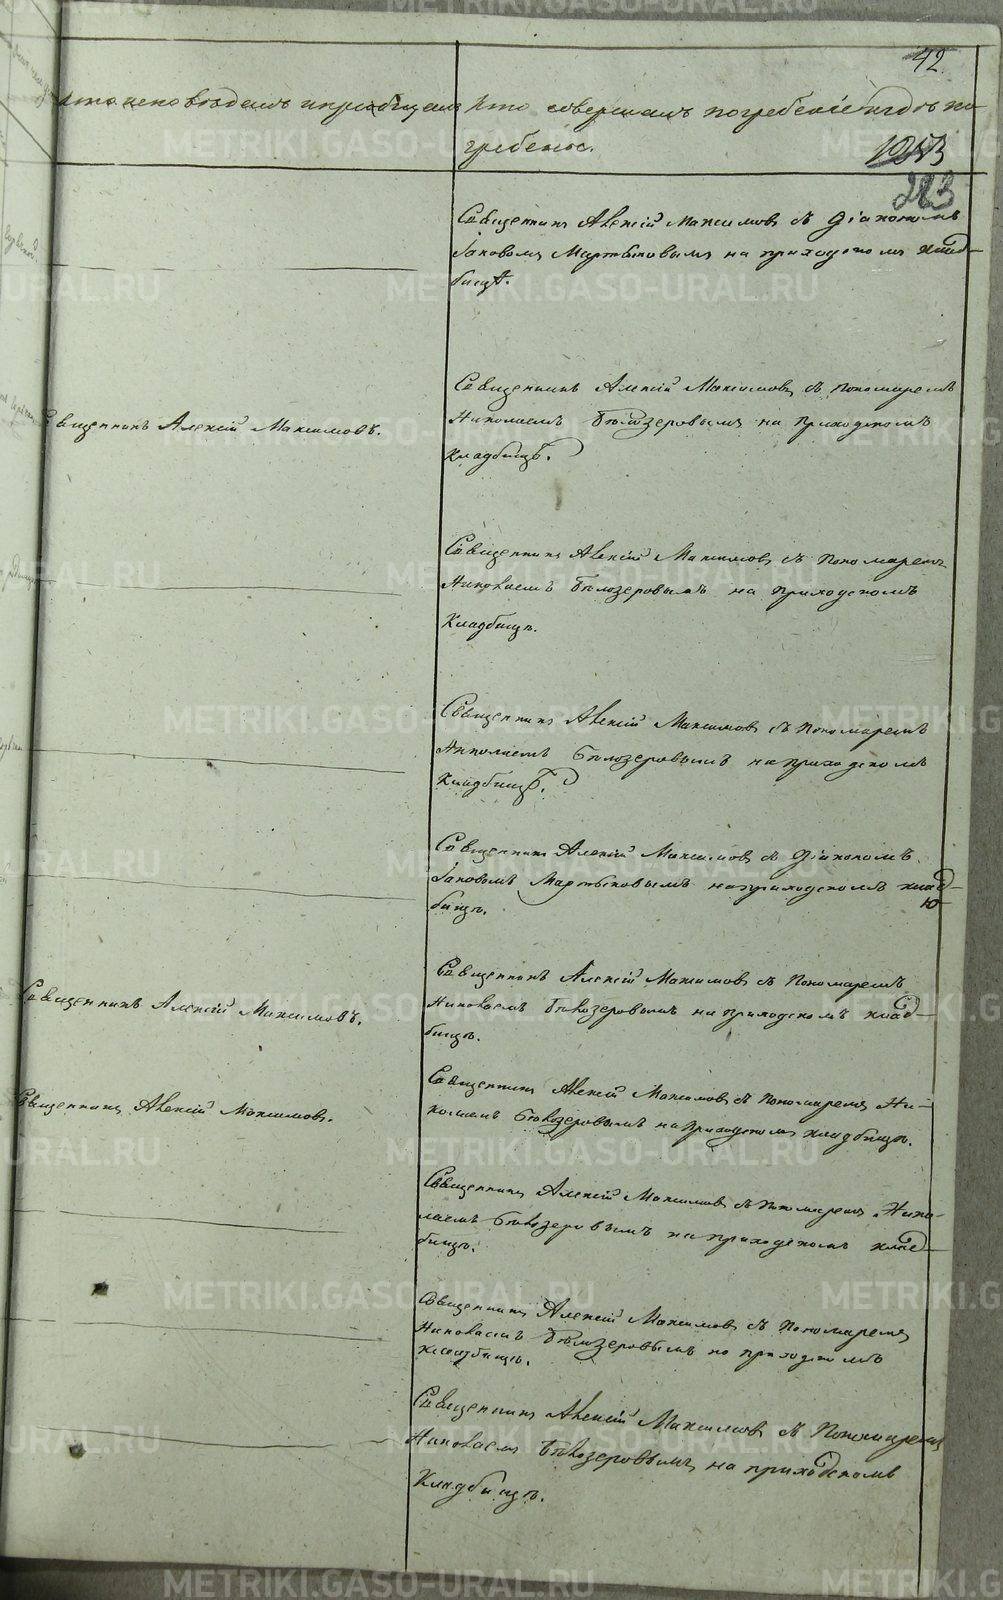 42
Кто исповѣдалъ и приобщалъ
Кто совершалъ погребенїе и гдѣ по-
гребены.
1253
283
Священникъ Алексїй Максимовъ съ Дїакономъ
Іаковомъ Мартыновымъ на приходскомъ клад-
бищѣ.
Священникъ Алексїй Максимовъ.
Священникъ Алексїй Максимовъ съ Пономаремъ
Николаемъ Бѣлозеровымъ на приходскомъ
кладбищѣ.
Священникъ Алексїй Максимовъ съ Пономаремъ
Николаемъ Бѣлозеровымъ на приходскомъ
Кладбищѣ.
Священникъ Алексїй Максимовъ съ Пономаремъ
Николаемъ Бѣлозеровымъ на приходскомъ
Кладбищѣ.
Священникъ Алексїй Максимовъ съ Дїакономъ
Іаковомъ Мартыновымъ на приходскомъ клад-
бищѣ.
Священникъ Алексїй Максимовъ.
Священникъ Алексїй Максимовъ съ Пономаремъ
Николаемъ Бѣлозеровымъ на приходскомъ клад-
бищѣ.
Священникъ Алексїй Максимовъ.
Священникъ Алексїй Максимовъ съ Пономаремъ Ни-
колаемъ Бѣлозеровымъ на приходскомъ кладбищѣ.
Священникъ Алексїй Максимовъ съ Пономаремъ Нико-
лаемъ Бѣлозеровымъ на приходскомъ клад-
бищѣ.
Священникъ Алексїй Максимовъ съ Пономаремъ
Николаемъ Бѣлозеровымъ на приходскомъ
кладбищѣ.
Священникъ Алексїй Максимовъ съ Пономаремъ
Николаемъ Бѣлозеровымъ на приходскомъ
Кладбищѣ.
METRIKI.GASO-URAL.RU